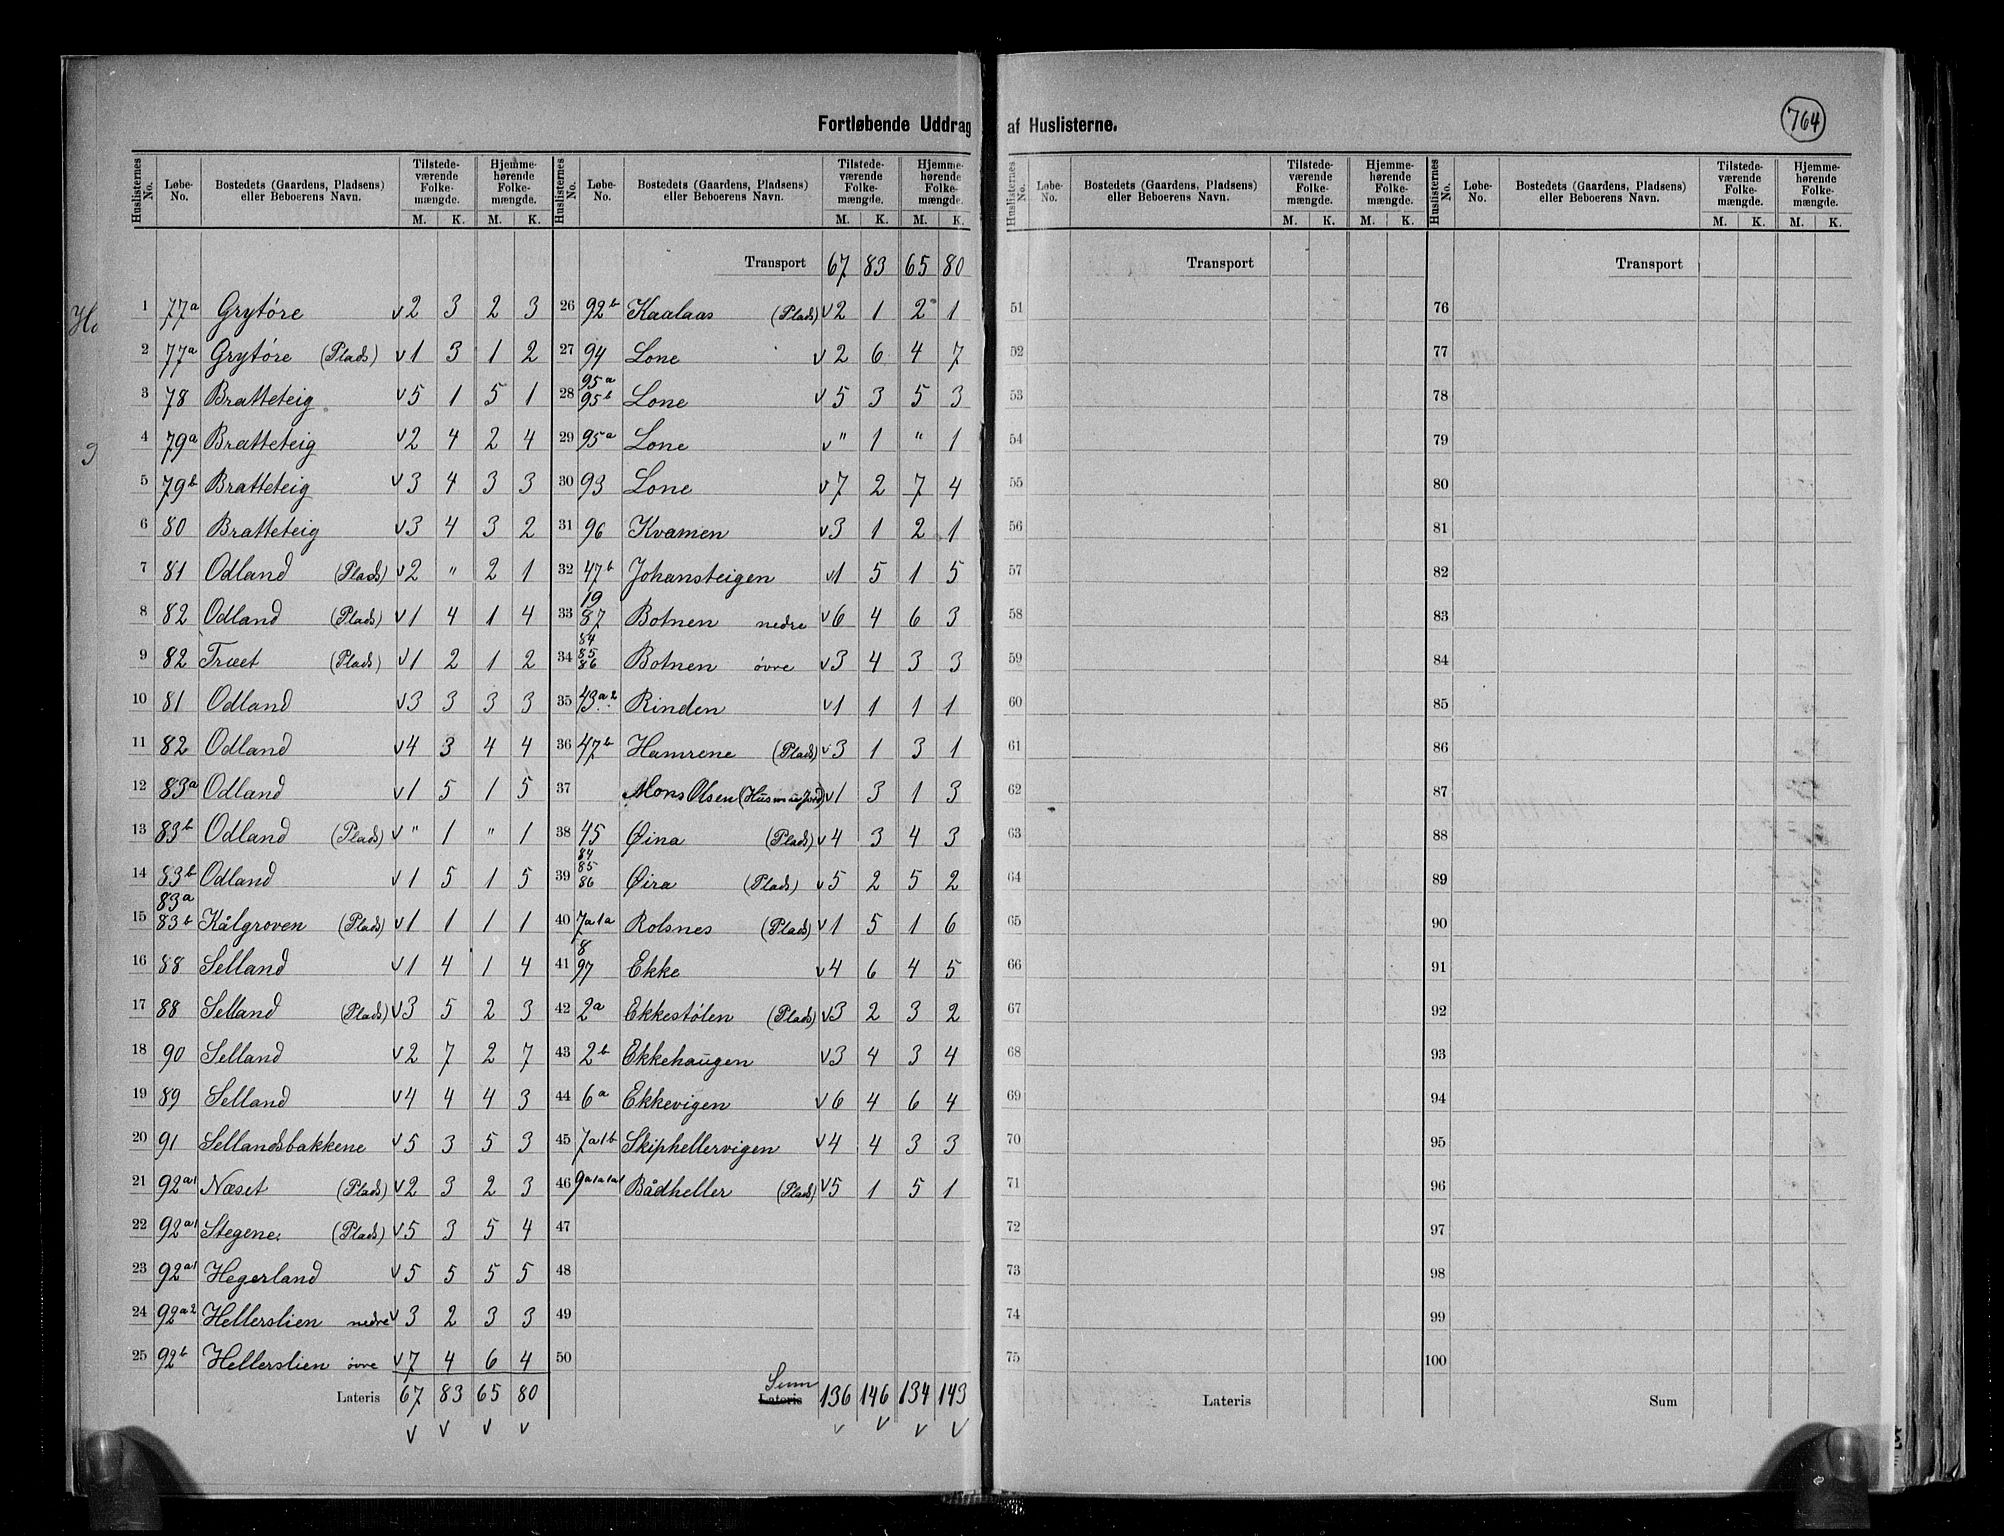 Fortløbende Uddrag af Huslisterne.
764
Huslisternes No. Løbe-No. Bostedets (Gaardens, Pladsens) eller Beboerens Navn. Tilstedeværende Folkemængde. M. K. Hjemmehørende Folkemængde. M. K.
1 77a Grytøre v 2 3 2 3
2 77a Grytøre (Plads) v 1 3 1 2
3 78 Bratteteig v 5 1 5 1
4 79a Bratteteig v 2 4 2 4
5 79b Bratteteig v 3 4 3 3
6 80 Bratteteig v 3 4 3 2
7 81 Odland (Plads) v 2 " 2 1
8 82 Odland (Plads) v 1 4 1 4
9 82 Træet (Plads) v 1 2 1 2
10 81 Odland v 3 3 3 3
11 82 Odland v 4 3 4 4
12 83a Odland v 1 5 1 5
13 83b Odland (Plads) v " 1 " 1
14 83b Odland v 1 5 1 5
15 83a 83b Kålgroven (Plads) v 1 1 1 1
16 88 Selland v 1 4 1 4
17 88 Selland (Plads) v 3 5 2 3
18 90 Selland v 2 7 2 7
19 89 Selland v 4 4 4 3
20 91 Sellandsbakkene v 5 3 5 3
21 92a1 Næset (Plads) v 2 3 2 3
22 92a1 Stegene (Plads) v 5 3 5 4
23 92a1 Hegerland v 5 5 5 5
24 92a2 Hellerslien nedre v 3 2 3 3
25 92b Hellerslien øvre v 7 4 6 4
Lateris 67 83 65 80
v v v v
Huslisternes No. Løbe-No. Bostedets (Gaardens, Pladsens) eller Beboerens Navn. Tilstedeværende Folkemængde. M. K. Hjemmehørende Folkemængde. M. K.
Transport 67 83 65 80
26 92b Kaalaas (Plads) v 2 1 2 1
27 94 Lone v 2 6 4 7
28 95a 95b Lone v 5 3 5 3
29 95a Lone v " 1 " 1
30 93 Lone v 7 2 7 4
31 96 Kvamen v 3 1 2 1
32 47b Johansteigen v 1 5 1 5
33 19 87 Botnen nedre v 6 4 6 3
34 84 85 86 Botnen øvre v 3 4 3 3
35 43a2 Rinden v 1 1 1 1
36 47b Hamrene (Plads) v 3 1 3 1
37 Mons Olsen (Husm u Jord) v 1 3 1 3
38 45 Øina (Plads) v 4 3 4 3
39 84 85 86 Øira (Plads) v 5 2 5 2
40 7a1a Rolsnes (Plads) v 1 5 1 6
41 8 97 Ekke v 4 6 4 5
42 2a Ekkestølen (Plads) v 3 2 3 2
43 2b Ekkehaugen v 3 4 3 4
44 6a Ekkevigen v 6 4 6 4
45 7a1b Skiphellervigen v 4 4 3 3
46 9a1a1a1 Bådheller (Plads) v 5 1 5 1
47
48
49
50
Sum Lateris 136 146 134 143
v v v v
Huslisternes No. Løbe-No. Bostedets (Gaardens, Pladsens) eller Beboerens Navn. Tilstedeværende Folkemængde. M. K. Hjemmehørende Folkemængde. M. K.
Transport
51
52
53
54
55
56
57
58
59
60
61
62
63
64
65
66
67
68
69
70
71
72
73
74
75
Lateris
Huslisternes No. Løbe-No. Bostedets (Gaardens, Pladsens) eller Beboerens Navn. Tilstedeværende Folkemængde. M. K. Hjemmehørende Folkemængde. M. K.
Transport
76
77
78
79
80
81
82
83
84
85
86
87
88
89
90
91
92
93
94
95
96
97
98
99
100
Sum